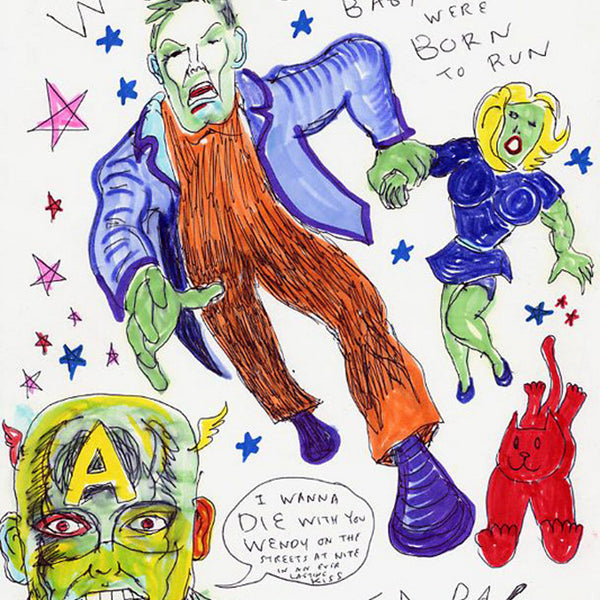 BABY
WERE
BORN
TO RUN
A
I WANNA
DIE WITH YOU
WENDY ON THE
STREETS AT NITE
IN AN EVER
LASTING
KISS